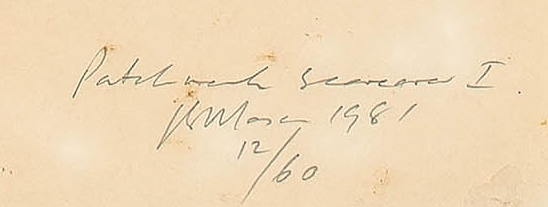 Patchwork Scarecrow I.
1981
12/60